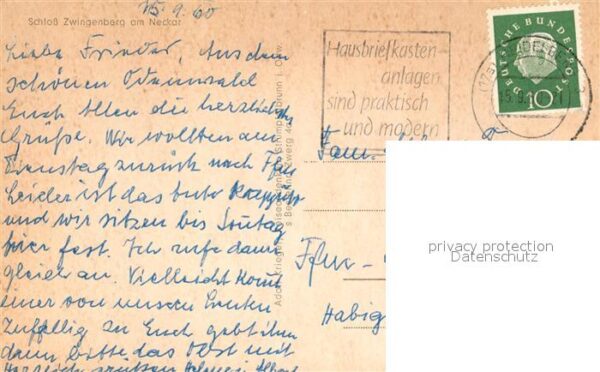 15.9.60
Schloß Zwingenberg am Neckar
Liebe Frieder, Aus dem
schönen Odenwald
Euch Allen die herzlichste
Grüße. Wir wollten am
Dienstag zurück nach
Leider ist das Auto kaputt
und wir sitzen bis Sontag
hier fest. Ich rufe dann
gleich an. Vielleicht kommt
einer von unseren Leuten
Zufällig zu Euch gebt ihm
dann bitte das Obst mit
Hausbriefkasten-
anlagen
sind praktisch
und modern
DEUTSCHE BUNDESPOST
10
Fam.
Ffm -
Habig
privacy protection
Datenschutz